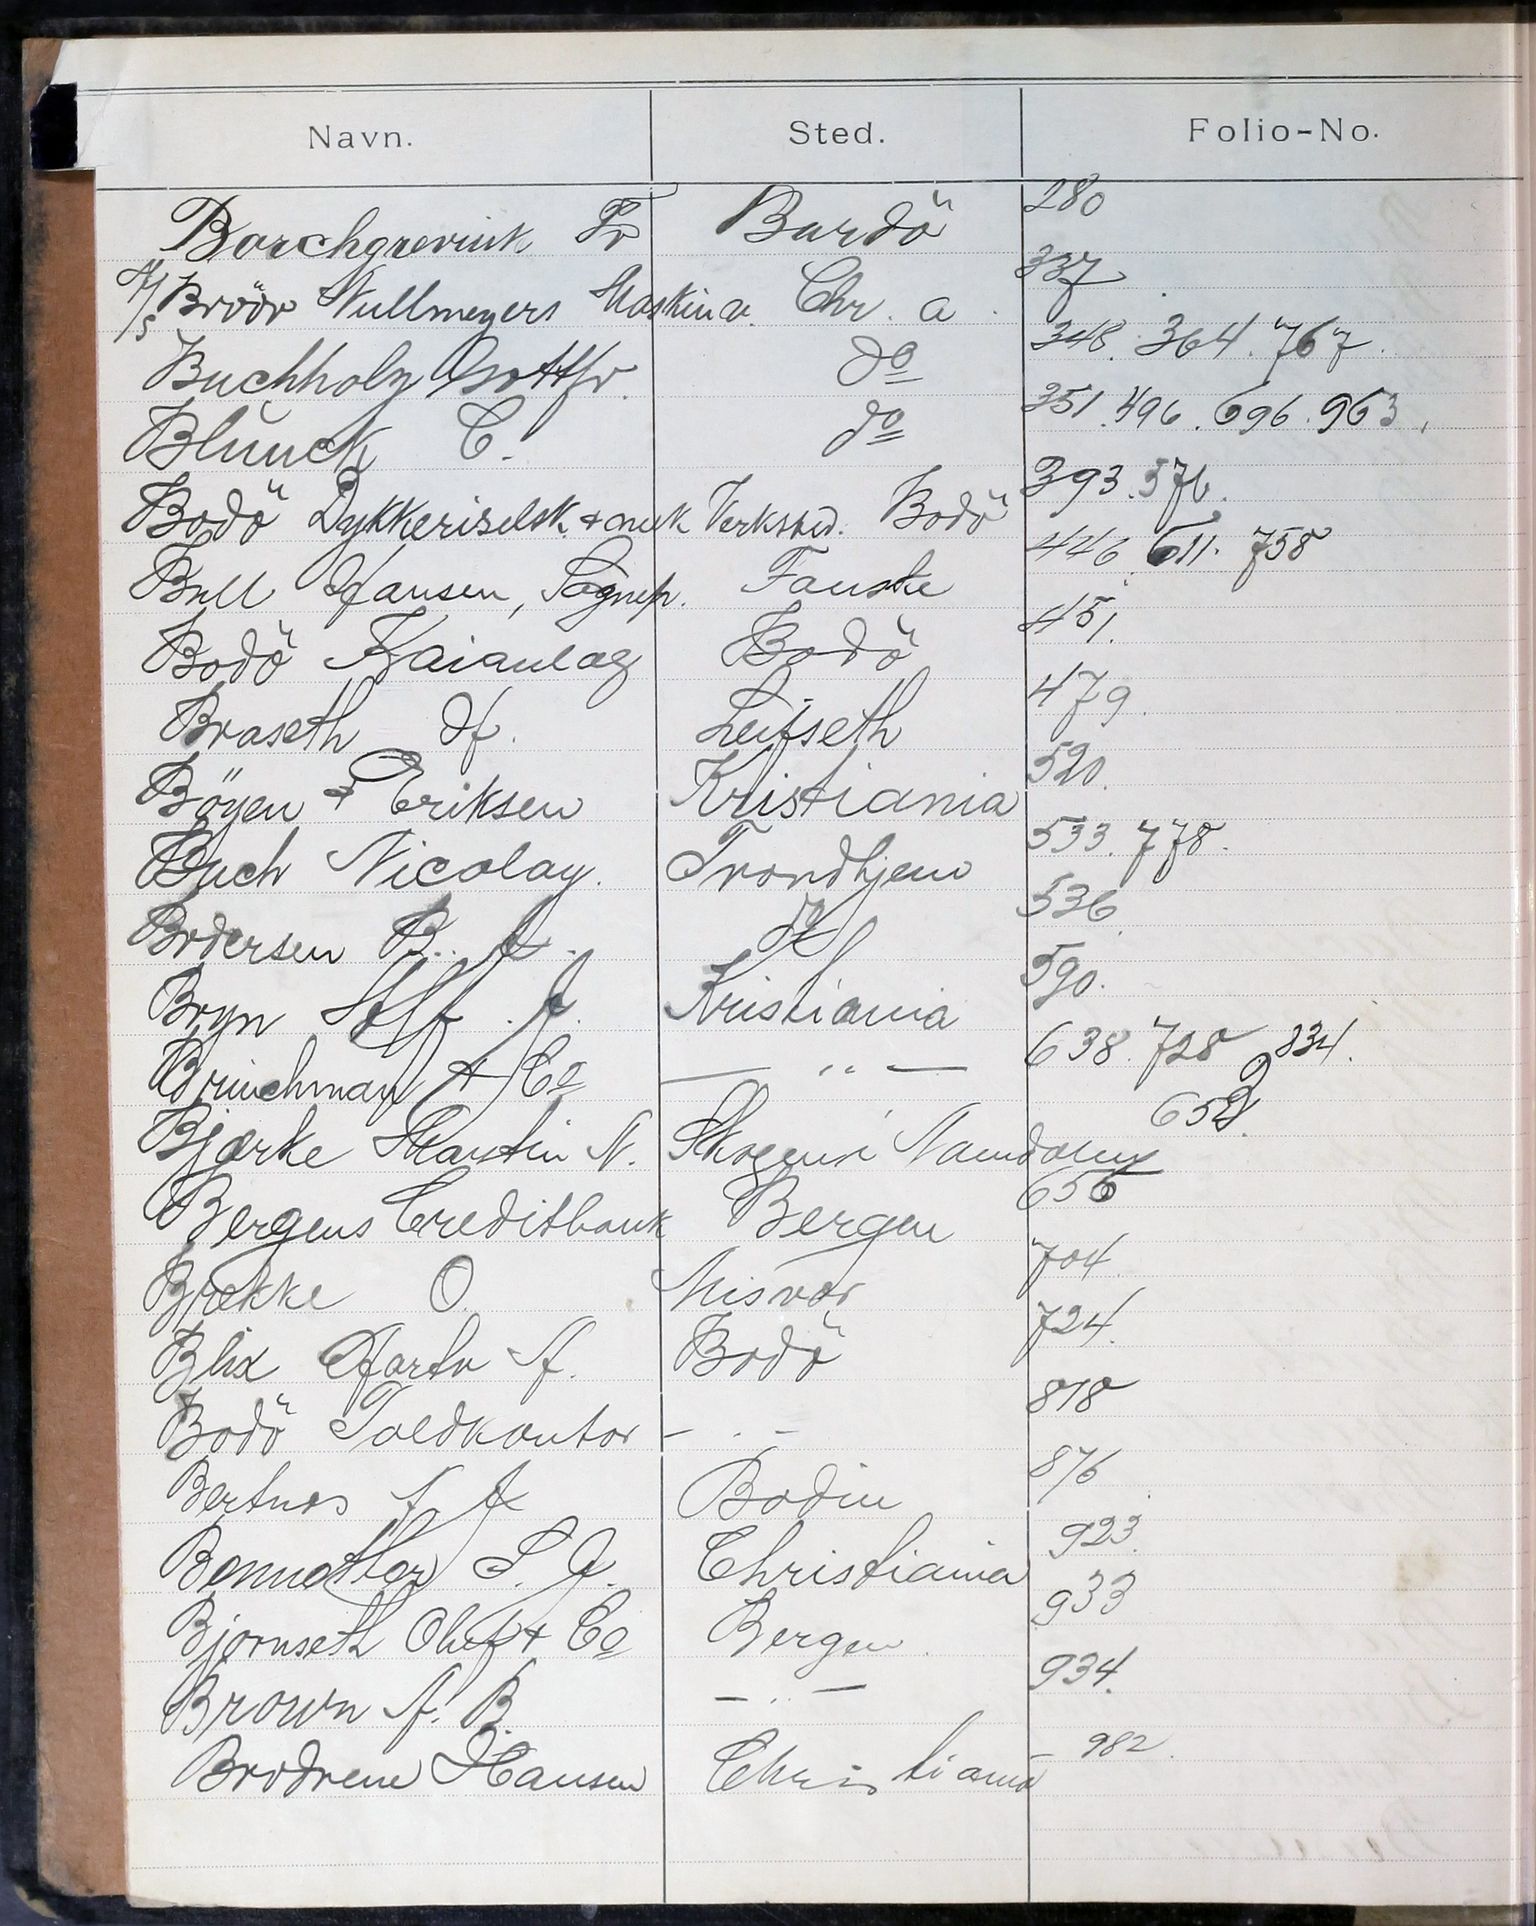 Navn. Sted. Folio-No.
Borchgrevink Fr Burdö 280
A/S Brödr Wullmeyers Maskinv. Chr. a. 337
Buchholz Gottfr. do 348. 364. 767.
Blunck C. do 351. 496. 696. 963.
Bodö Dykkeriselsk. & mek Verksted. Bodö 393. 576.
Bull Hansen, Sognep. Fauske 446. 611. 758
Bodö Kaianlæg Bodö 451.
Braseth Leifseth 479.
Böyen & Eriksen Kristiania 520.
Buch Nicolay. Trondhjem 533. 778.
Brodersen B. A. do 536.
Bryn Alf. J. Kristiania 590.
Brinchman & Co — " — 638. 728 834.
Bjerke Martin N. Namdalen 652.
Bergens Creditbank Bergen 656
Brekke O. Misvær 704.
Blix Hartv A. Bodö 724.
Bodö Toldkontor - . - 818
Bertnes A. A Bodin 876
S. J. Christiania 923.
Bjornseth Oluf & Co Bergen 933
Brown A. B. - .. - 934.
Brodrene Hansen Christiania - 982.